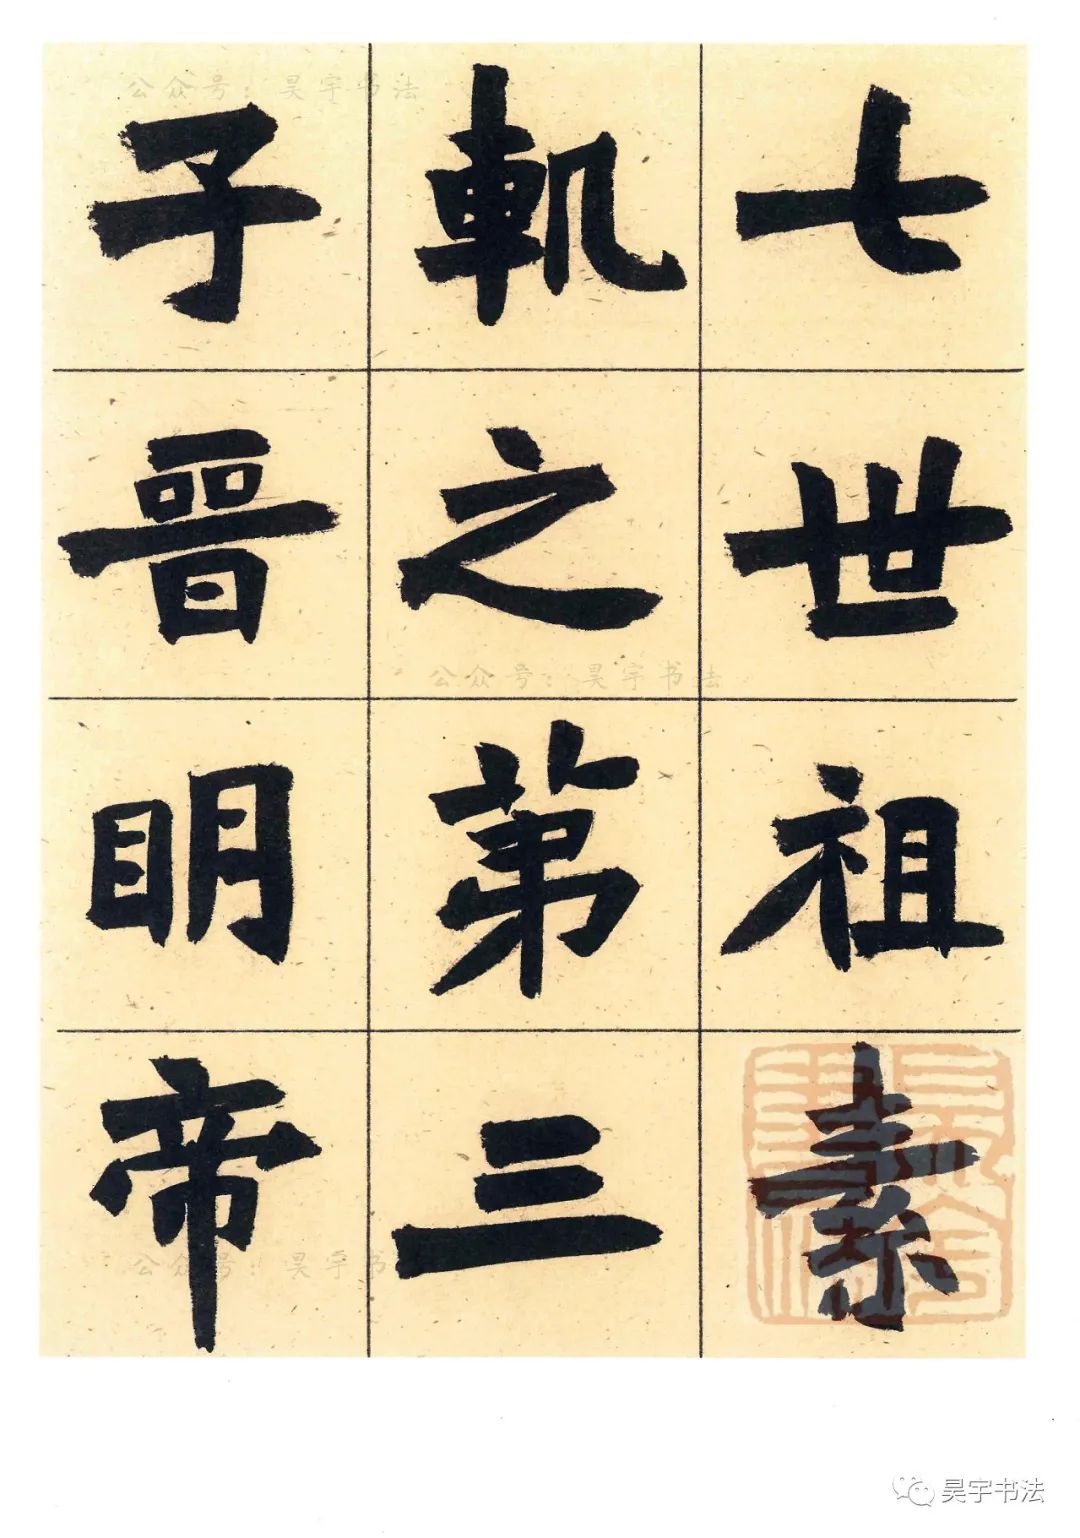 七世祖素
軌之第三
子晉明帝
公众号：昊宇书法
公众号：昊宇书法
公众号：昊宇书法
昊宇书法